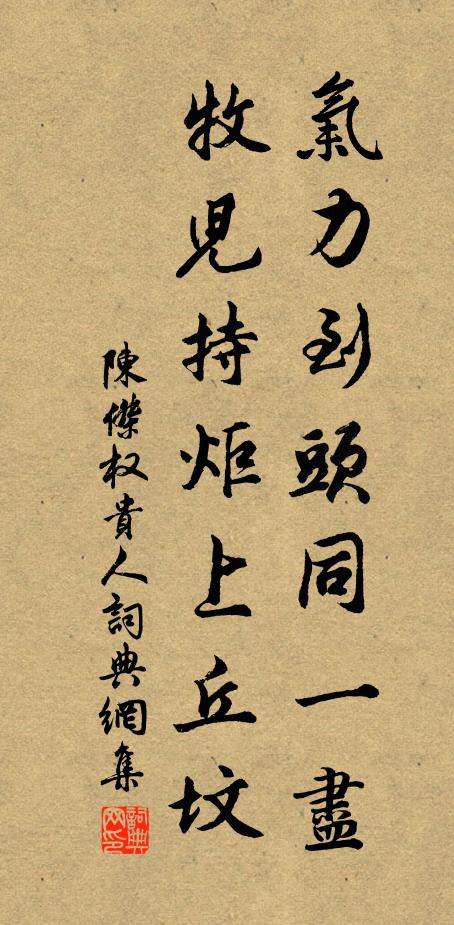 氣力到頭同一盡
牧兒持炬上丘墳
陳傑权貴人詞典網集
詞典网印